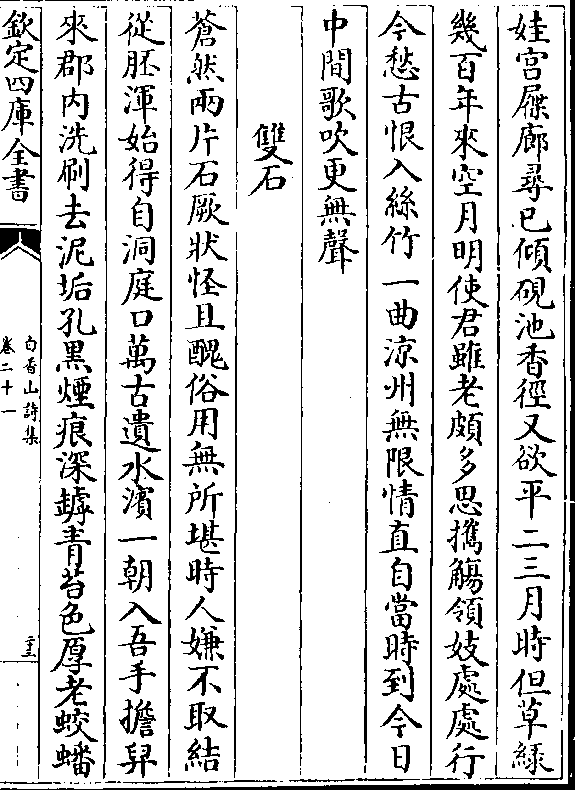 娃宫屧廊尋已傾硯池香徑又欲平二三月時但草緑
幾百年來空月明使君雖老頗多思攜觴領妓處處行
今愁古恨入絲竹一曲涼州無限情直自當時到今日
中間歌吹更無聲
雙石
蒼然兩片石厥狀怪且醜俗用無所堪時人嫌不取結
從胚渾始得自洞庭口萬古遺水濱一朝入吾手擔舁
來郡内洗刷去泥垢孔黒煙痕深罅青苔色厚老蛟蟠
欽定四庫全書
白香山詩集
卷二十一